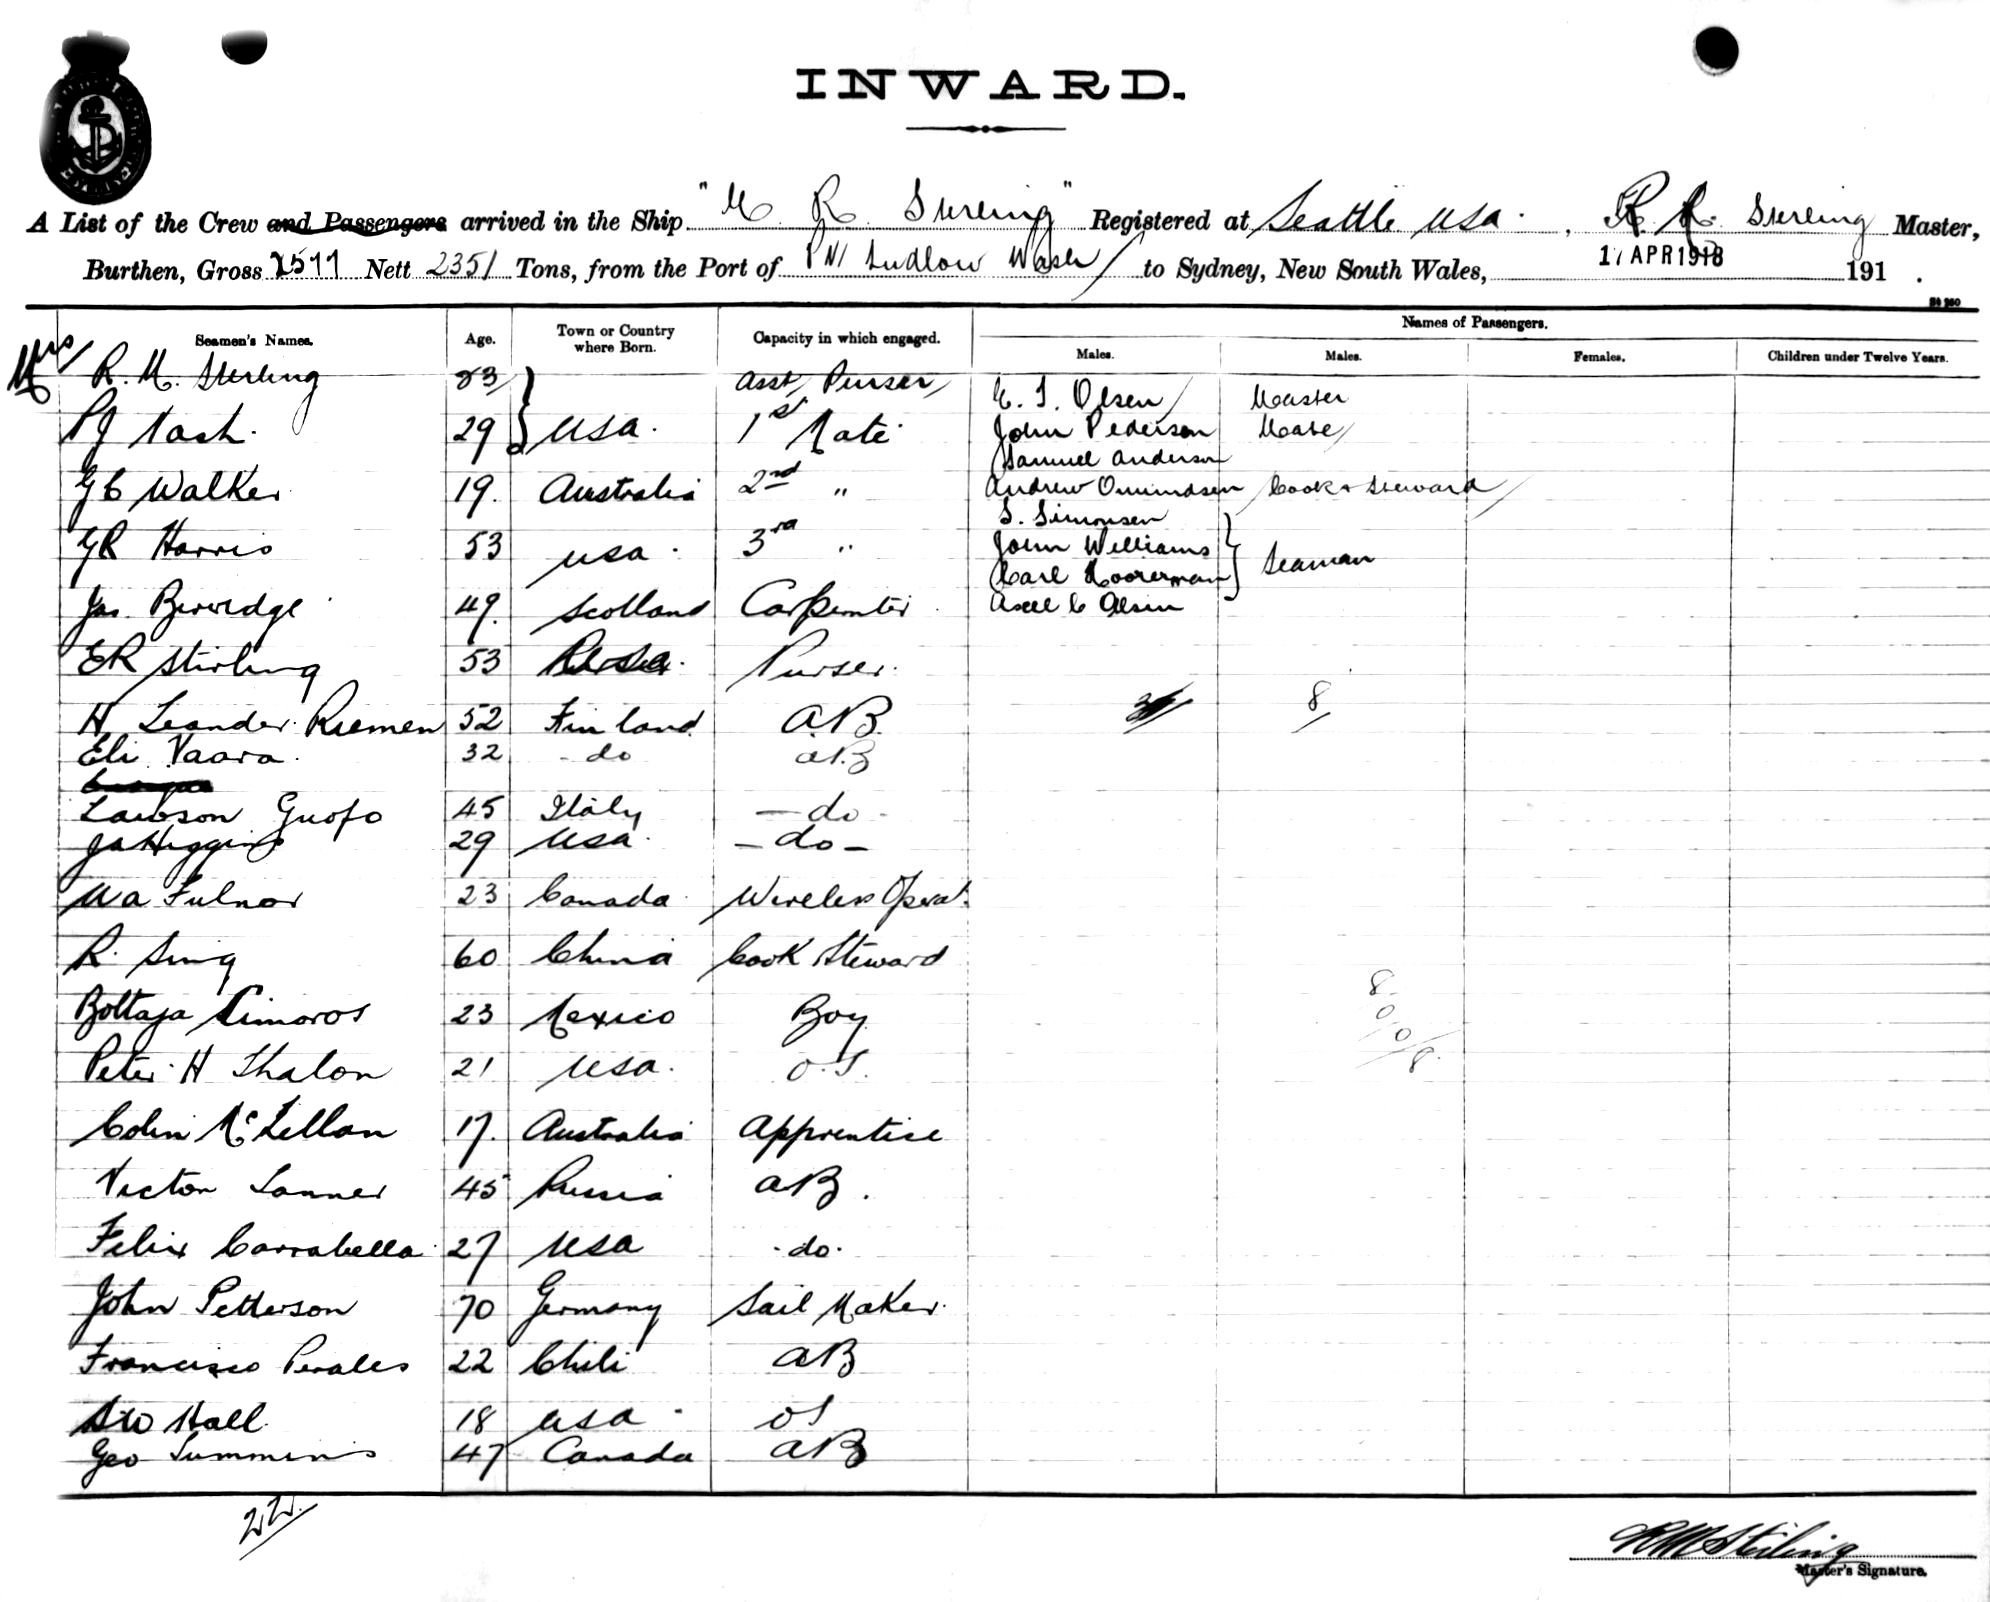 INWARD.
A List of the Crew and Passengers arrived in the Ship "E. R. Sterling" Registered at Seattle USA. , R. M. Sterling Master,
Burthen, Gross 2577 Nett 2351 Tons, from the Port of Pt Ludlow Wash to Sydney, New South Wales, 17 APR 1918 191 .
Seamen's Names. Age. Town or Country where Born. Capacity in which engaged. Names of Passengers.
Males. Males. Females. Children under Twelve Years.
Mrs R. M. Sterling 23 Asst Purser
E. T. Olsen Master
PJ Nash. 29 USA. 1st Mate
John Pederson Mate
Samuel Anderson
GC Walker 19. Australia 2nd "
Andrew Omundsen Cook & Steward
S. Simonsen
GR Harris 53 USA. 3rd "
John Williams Seaman
Carl
Jas. Beveridge 49. Scotland Carpenter
Axel C Olsen
ER Stirling 53 Purser.
H Leander Riemen 52 Finland AB.
8
Eli Vaara. 32 - do AB
Lawson Guofo 45 Italy - do -
JA Higgins 29 USA. - do -
WA Fulnor 23 Canada Wireless Operat.
R. Sing 60 China Cook Steward
8
0
0
8.
Bottaja Cimoros 23 Mexico Boy
Peter H Thalon 21 USA. O.S.
Colin McLellan 17. Australia Apprentice
Victor Lanner 45 Russia AB.
Felix Carrabella 27 USA - do.
John Petterson 70 Germany Sail Maker.
Francisco Perales 22 Chili AB
Hall 18 USA OS
Geo Summens 47 Canada AB
22.
RM Sterling
Master's Signature.